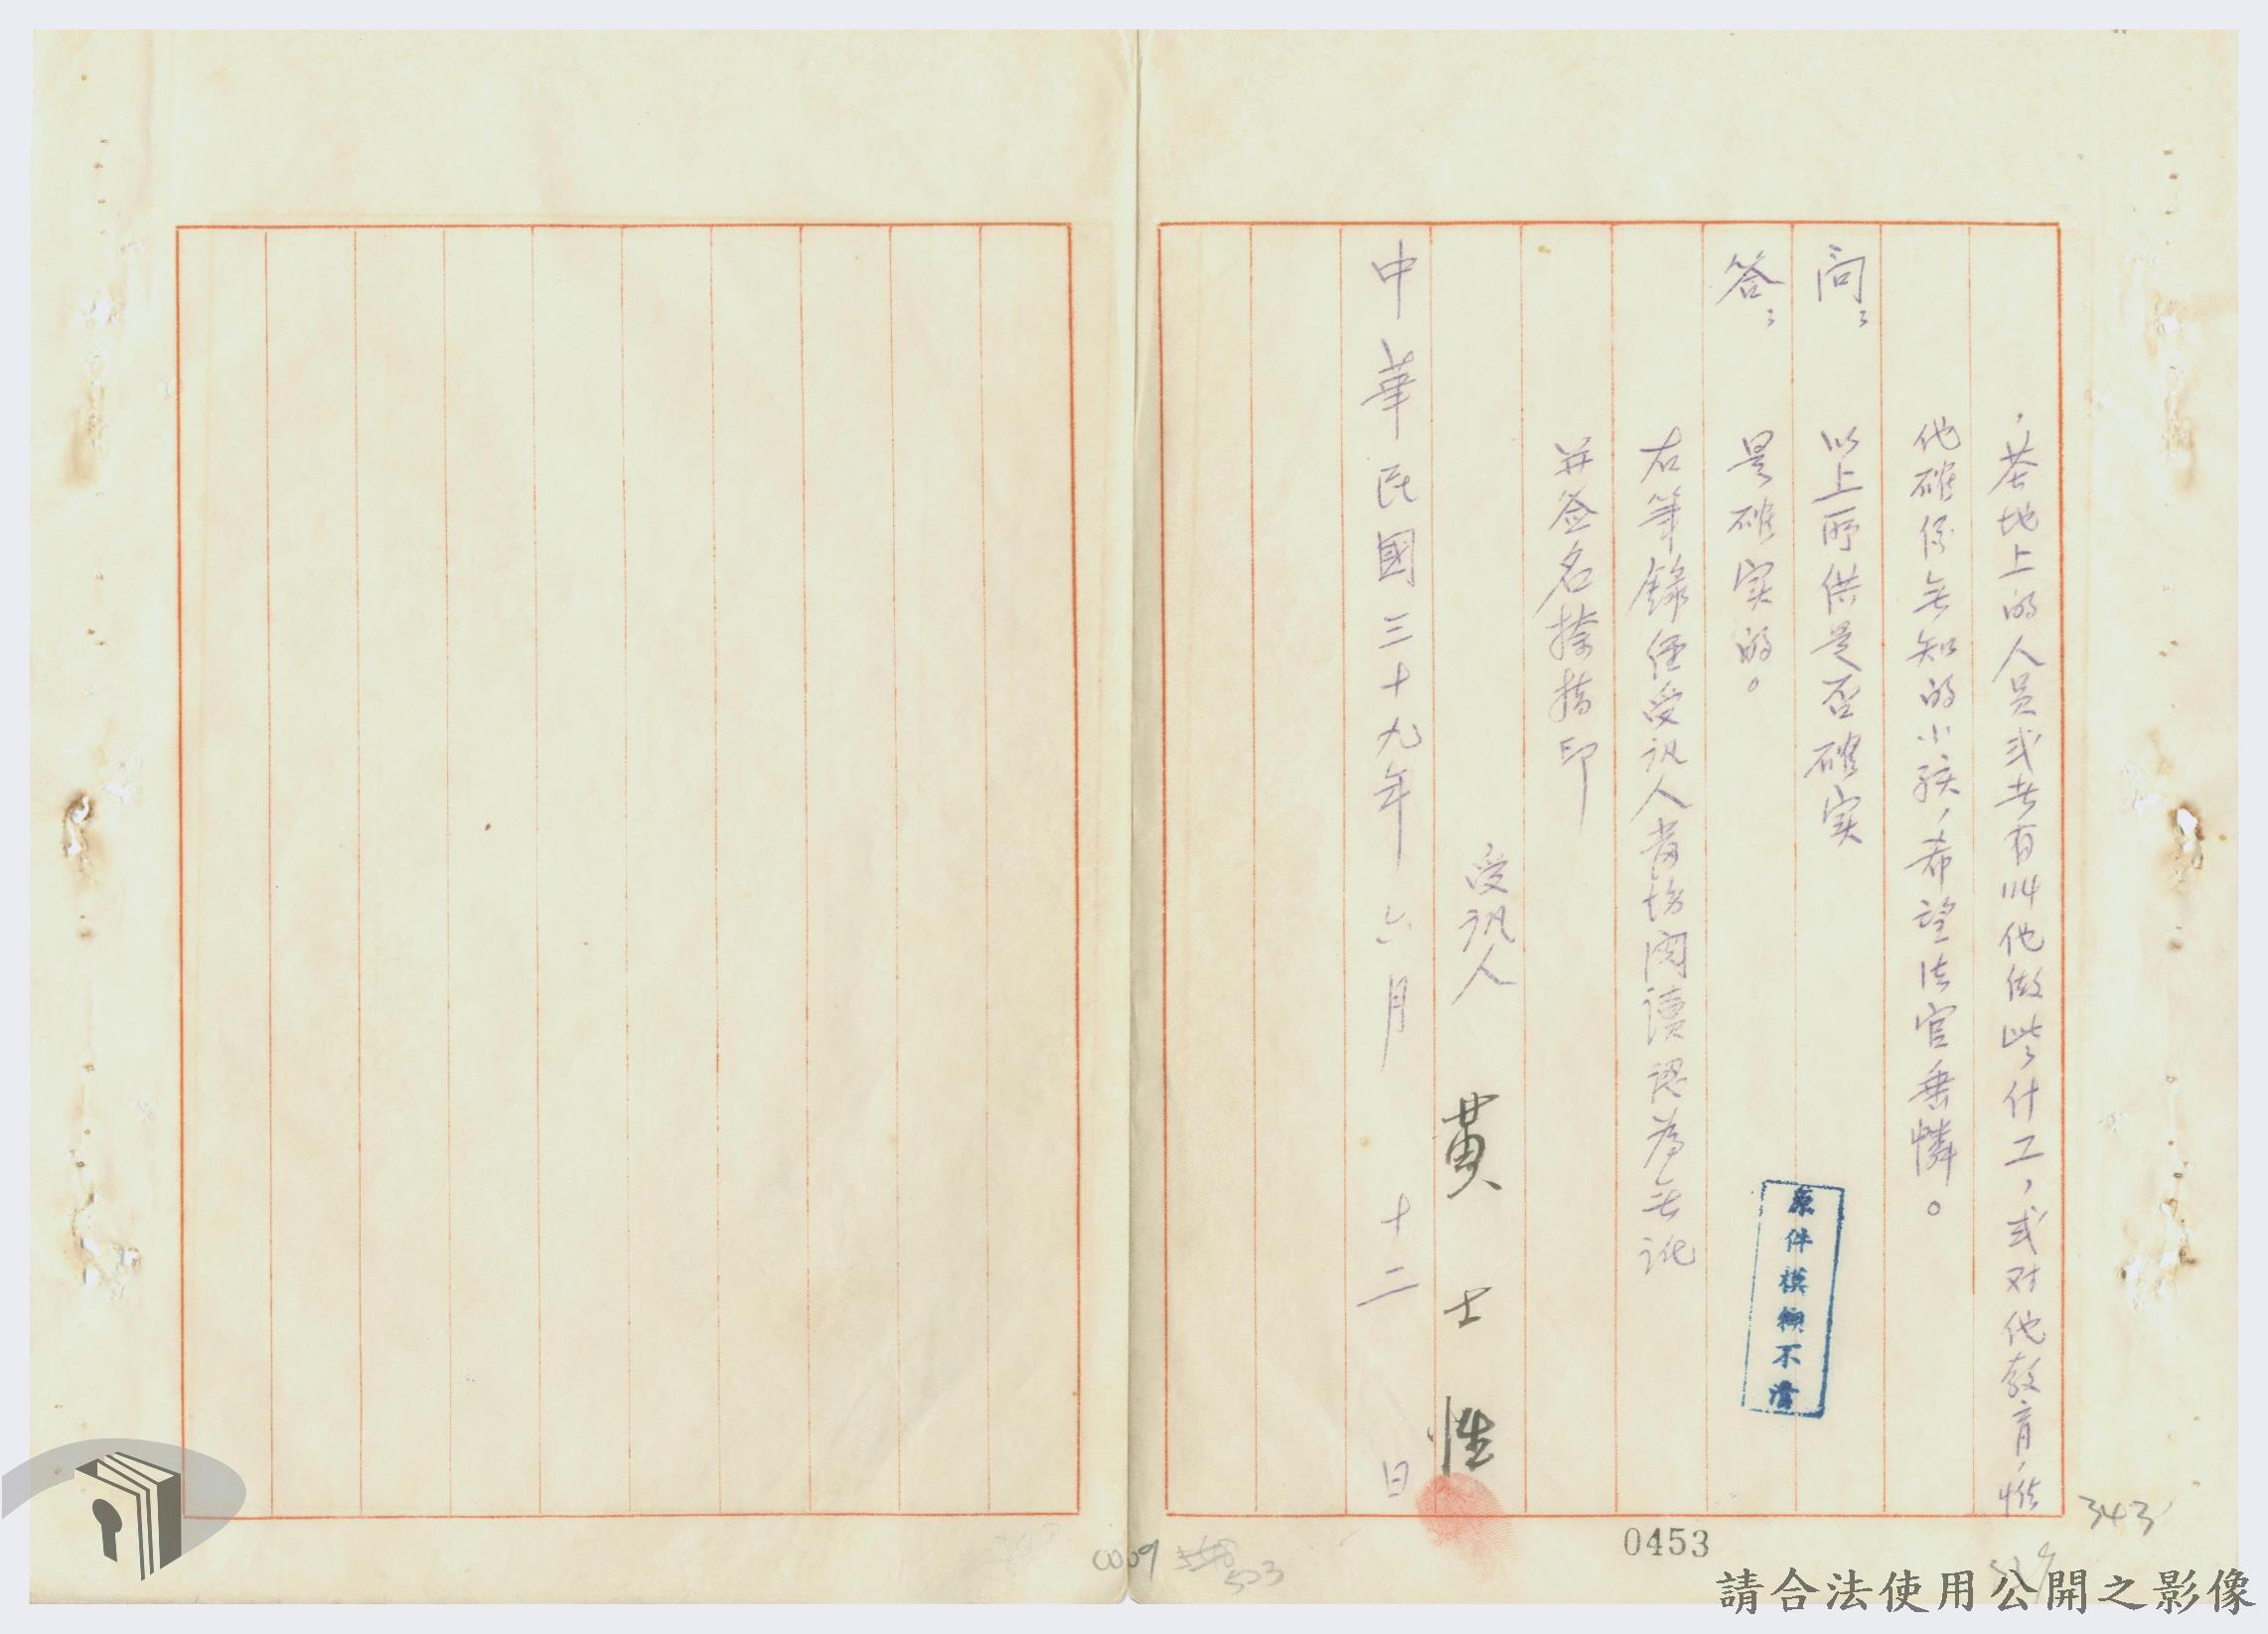 ，基地上的人員或者有叫他做些什工，或对他教育，惟
他確係無知的小孩，希望法官垂憐。
問：以上所供是否確实
答：是確实的。
右筆錄经受訊人當场閱讀認為無訛
并签名捺指印
受訊人 黃士性
中華民國三十九年六月十二日
原件模糊不清
343
0453
0009
503
請合法使用公開之影像